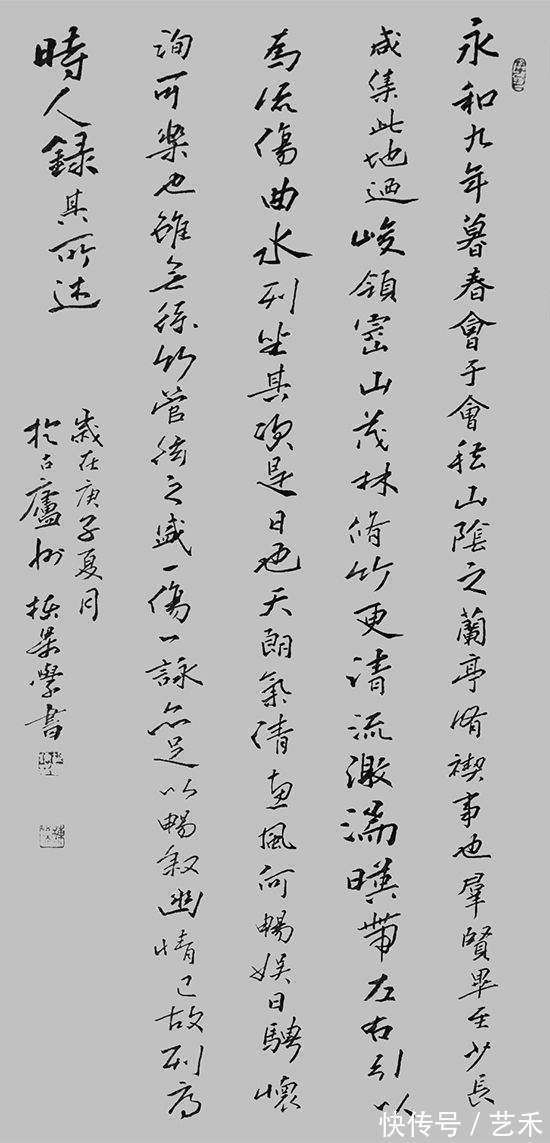 永和九年暮春會于會稽山陰之蘭亭脩禊事也羣賢畢至少長
咸集此地迺峻領崈山茂林脩竹更清流激湍暎帶左右引以
為流傷曲水列坐其次是日也天朗氣清惠風何暢娱日騁懷
洵可樂也雖無絲竹管絃之盛一傷一詠亦足以暢叙幽情已故列序
時人録其所述
歲在庚子夏月
於古廬州景學書
快传号／艺禾